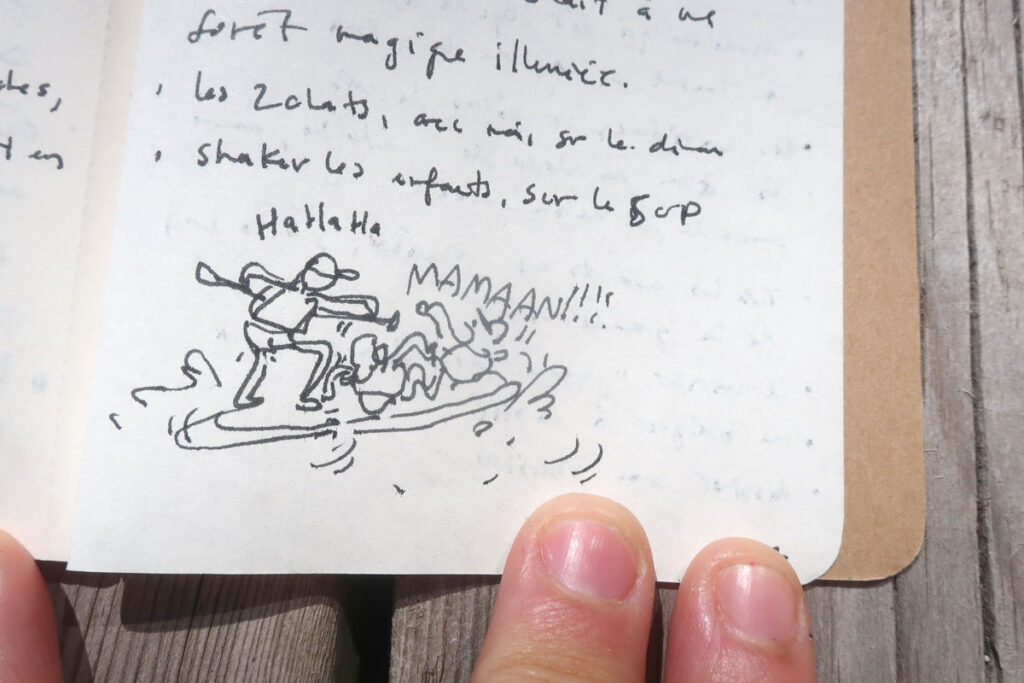 à une
forêt magique illuminée.
· les 2 chats, avec moi, sur le divan
· shaker les enfants, sur le SUP
HaHaHa
MAMAAN!!!!